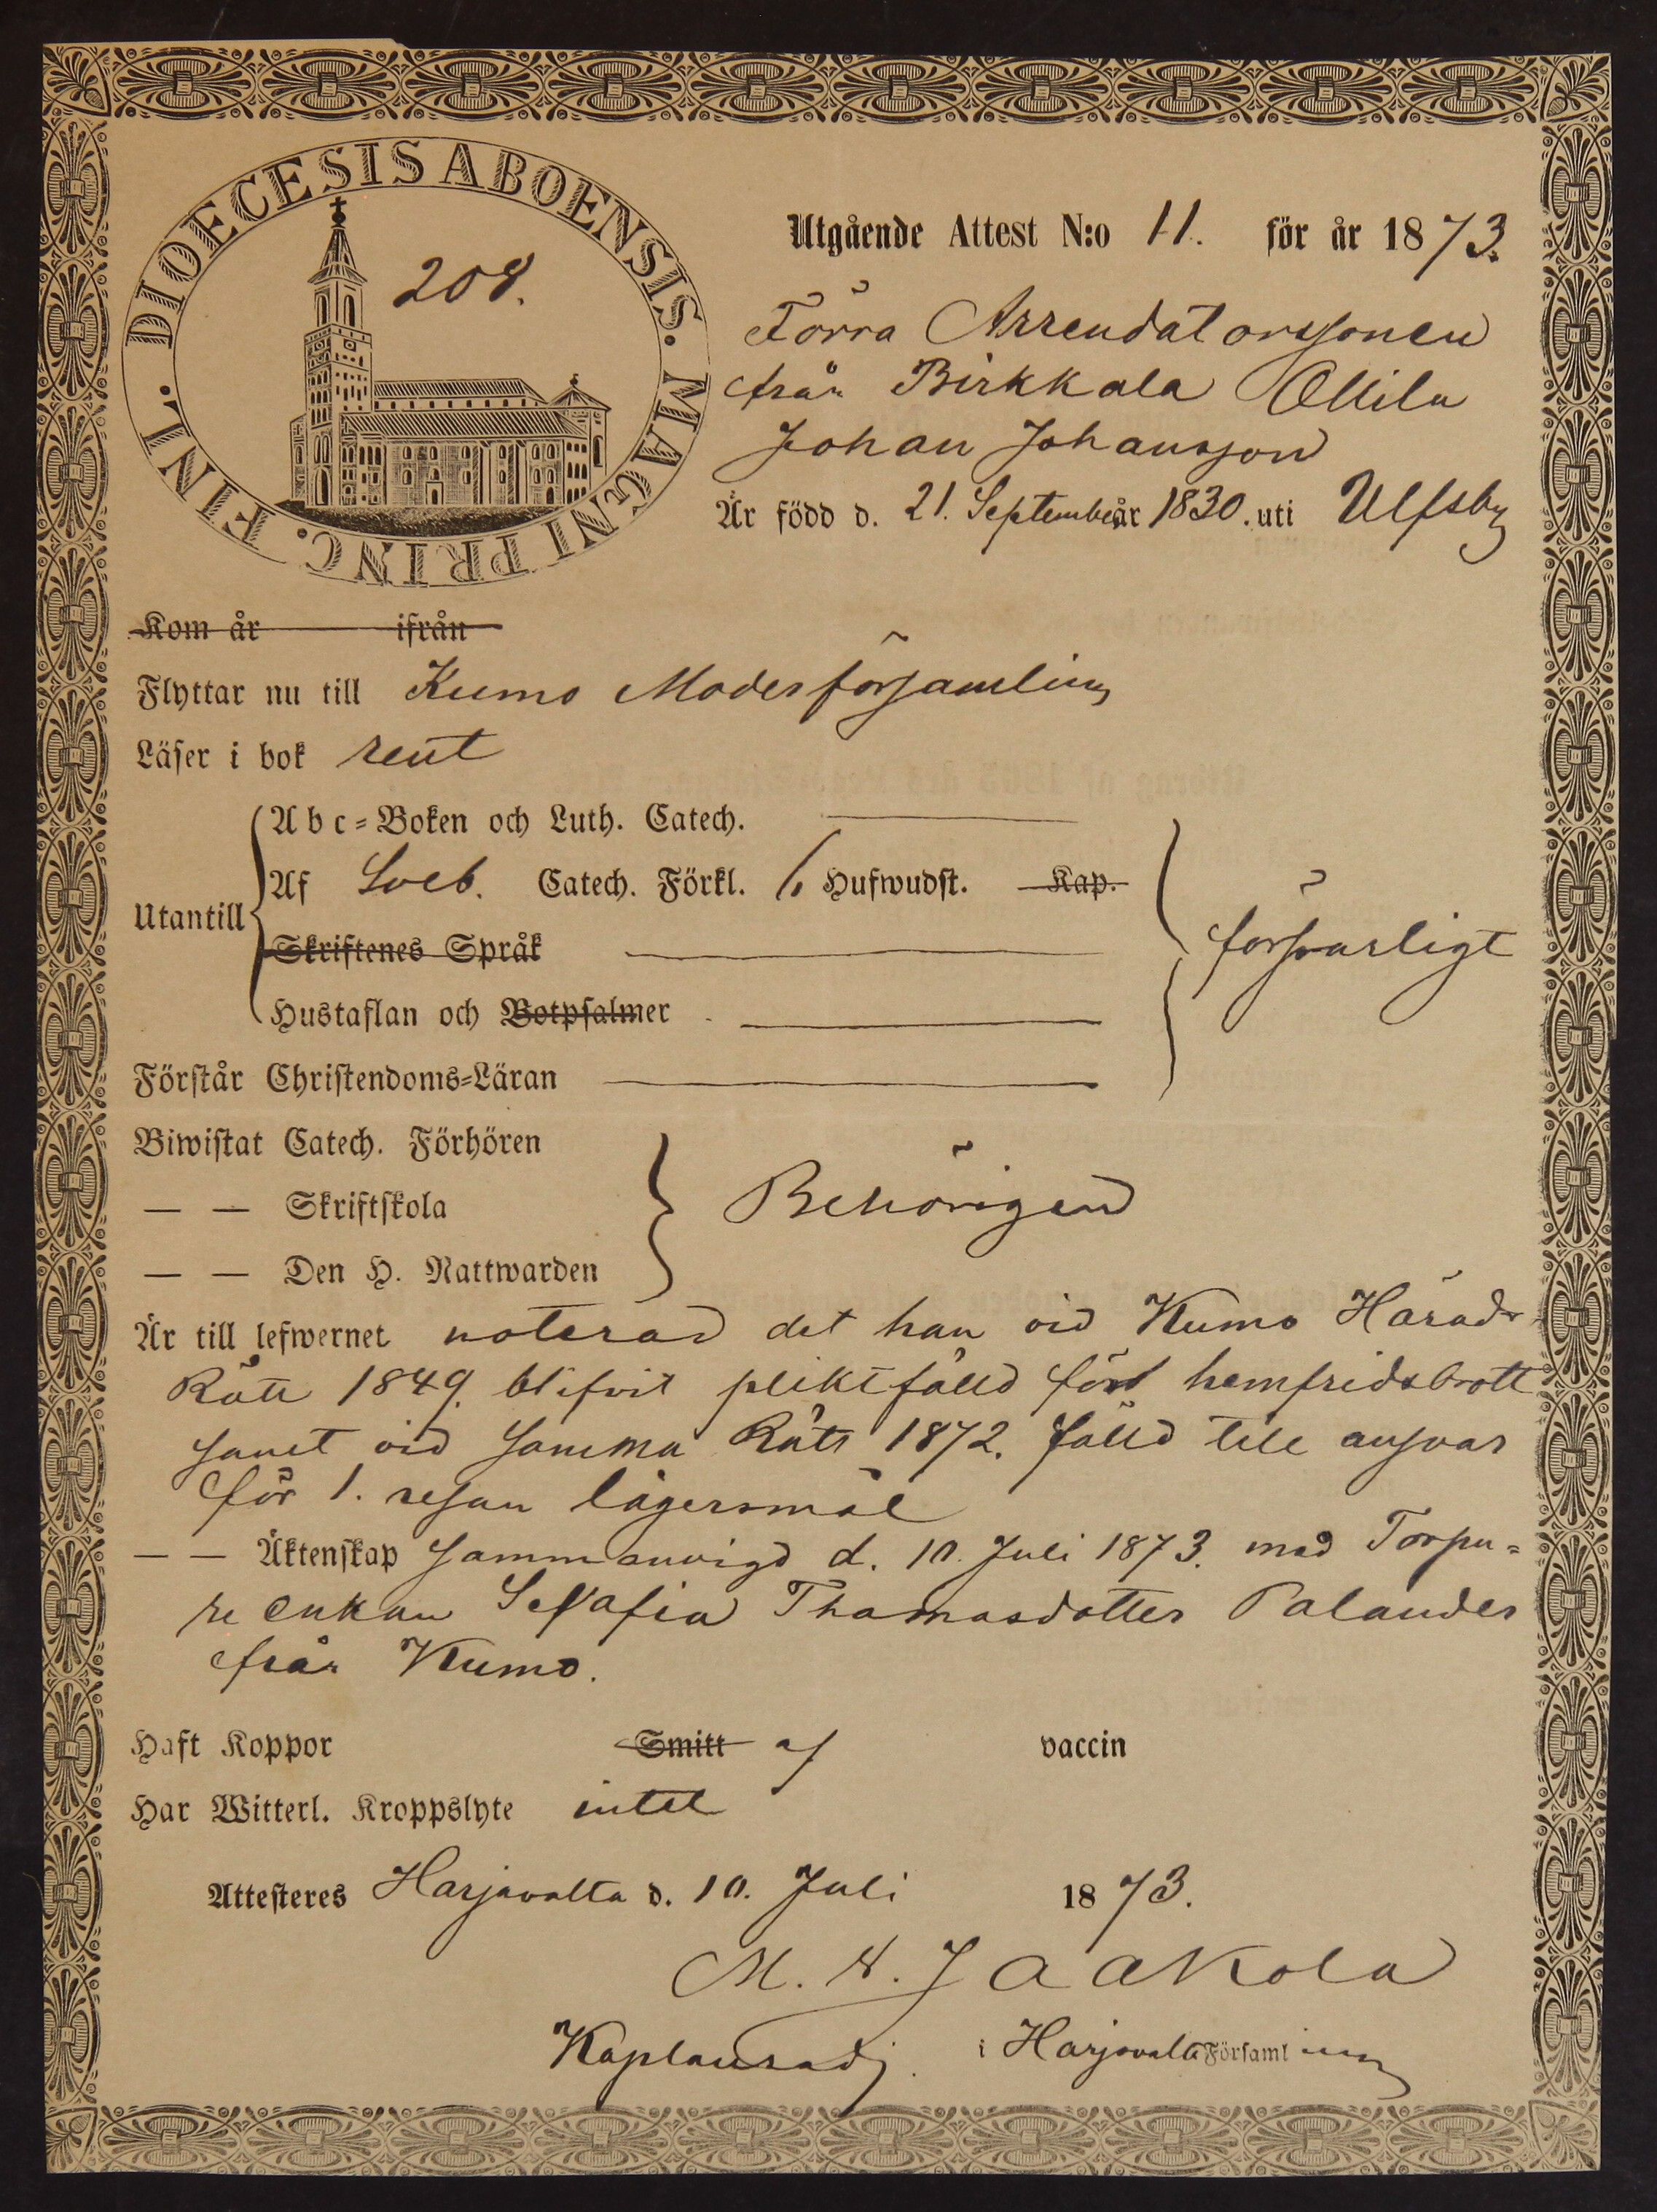 DIOECESIS ABOENSIS. MAGNI PRINC. FINL.
208.
Utgående Attest N:o 11. för år 1873.
Förra Arrendatorssonen
från Birkkala Ollila
Johan Johansson
Är född d. 21. September år 1830. uti Ulfsby
Kom år ifrån
Flyttar nu till Kumo Modersförsamling
Läser i bok rent
Abc-Boken och Luth. Catech.
Af Sveb. Catech. Förkl. 6 Hufwudst. Kap.
Utantill
Skriftenes Språk
försvarligt
Hustaflan och Botpsalmer
Förstår Christendoms-Läran
Biwistat Catech. Förhören
— — Skriftskola
Behörigen
— — Den H. Nattwarden
Är till lefwernet noterad det han vid Kumo Härads
Rätt 1849. blifvit pliktfälld för hemfridsbrott
samt vid samma Rätt 1872. fälld till ansvar
för 1. resan lägersmål
— — Äktenskap Sammanvigd d. 10. Juli 1873. med Torpa-
re enkan Serafia Thomasdotter Palander
från Kumo.
Haft Koppor Smitt af vaccin
Har Witterl. Kroppslyte intet
Attesteres Harjavalta d. 10. Juli 1873.
M. N. Jaakola
Kaplansadj. i Harjavalta Församling